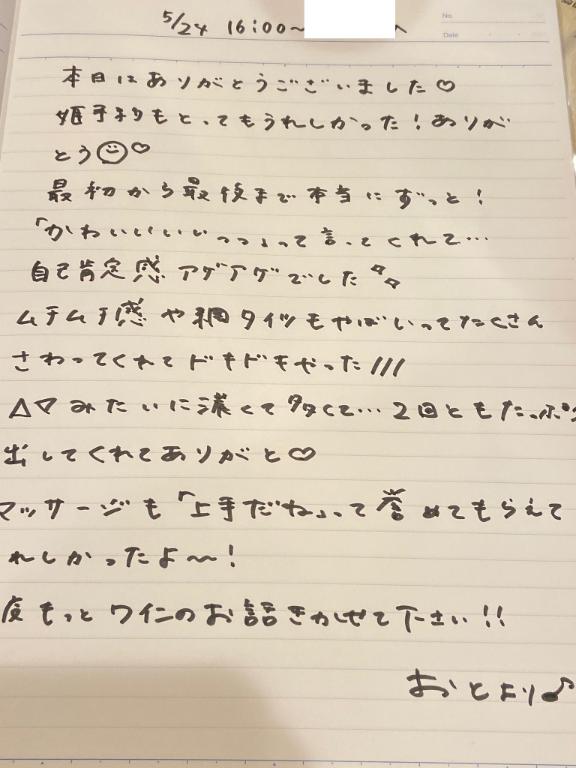 5/24 16:00〜 へ
No.
Date
本日はありがとうございました♡
姫予約もとってもうれしかった！ありが
とう☺♡
最初から最後まで本当にずっと！
「かわいいいいいっっ」って言ってくれて…
自己肯定感アゲアゲでした
ムチムチ感や網タイツもやばいってたくさん
さわってくれてドキドキやった///
△▽みたいに濃くて多くて…2回ともたっぷり
出してくれてありがと♡
マッサージも「上手だね」って誉めてもらえて
れしかったよ〜！
度もっとワインのお話きかせて下さい！！
おとより♪